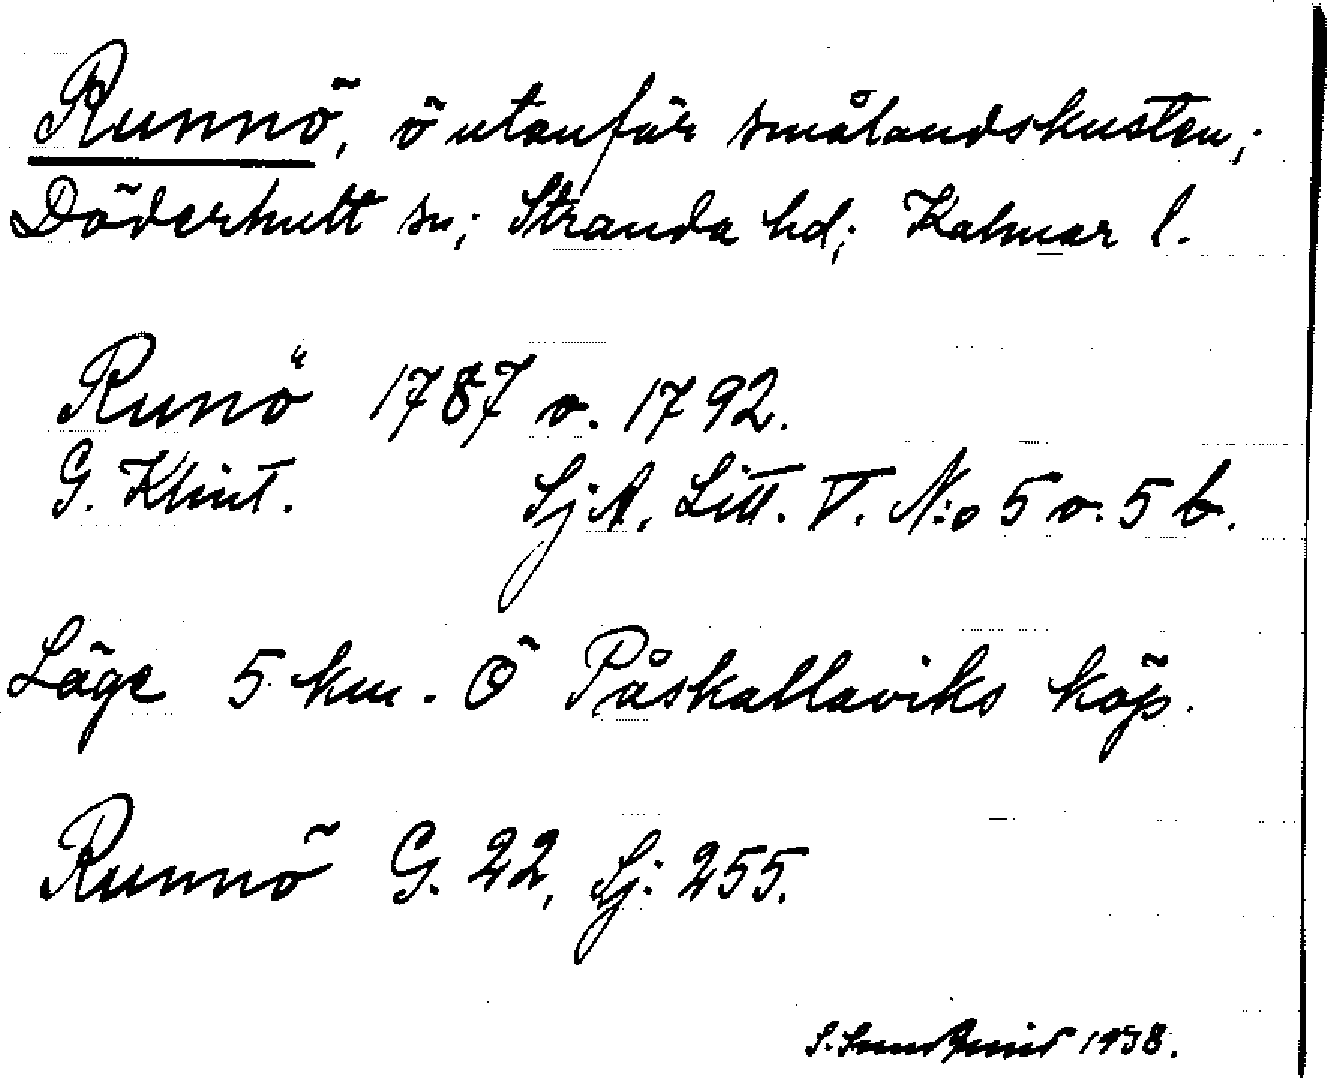 Runnö, ö utanför smålandskusten;
Döderhult sn; Stranda hd; Kalmar l.
Runö 1787 o. 1792.
G. Klint. SjA, Litt. V. N:o 5 o. 5 b.
Läge 5 km. Ö Påskallaviks köp.
Runnö G. 22, Sj: 255.
S. 1938.